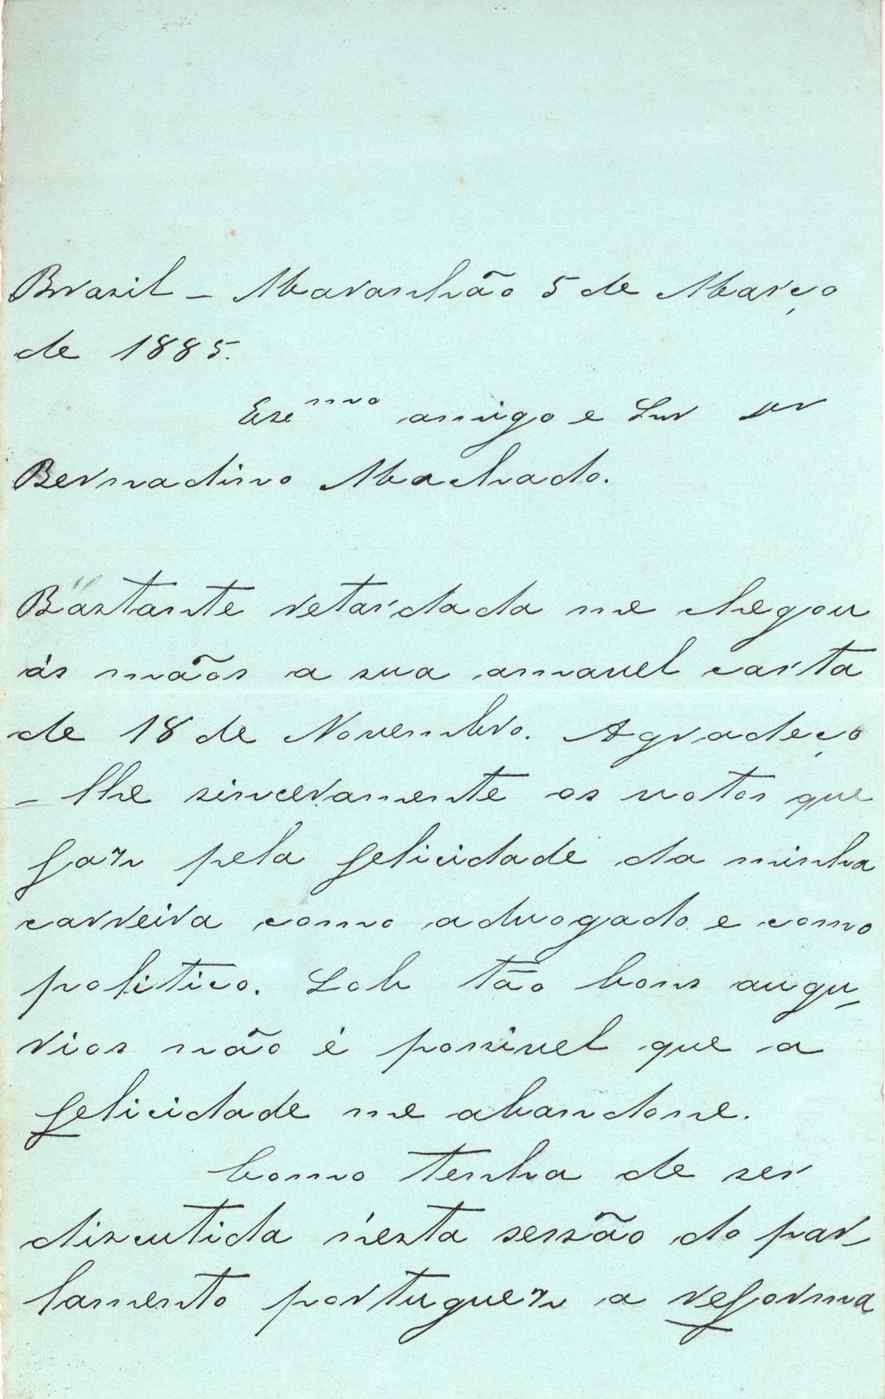 Brasil - Maranhão 5 de Março
de 1885.
Exc^mo amigo e Snr Dr
Bernadino Machado.
Bastante retardada me chegou
ás mãos a sua amavel carta
de 18 de Novembro. Agradeço
- lhe sinceramente os votos que
faz pela felicidade da minha
carreira como advogado e como
politico. Sob tão bons augu-
rios não é possivel que a
felicidade me abandone.
Como tenha de ser
discutida n'esta sessão do par-
lamento portuguez a reforma